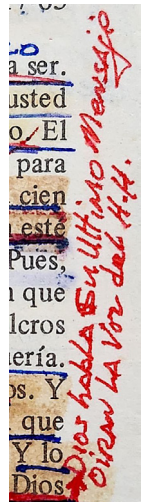 LO
a ser.
usted
o. El
para
cien
esté
Pues,
n que
lcros
ería.
os. Y
que
Y lo
Dios
Dios habla En Ultimo Mensaje
oiran LA Voz del H.H.